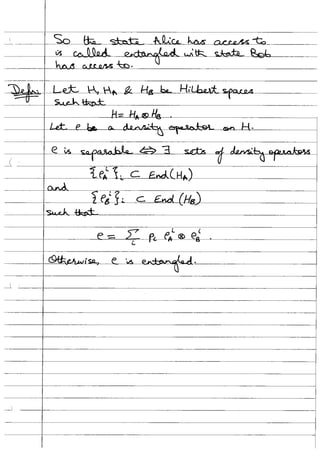 So the state Alice has access to
is called entangled with state Bob
has access to.
Defn: Let H, HA & HB be Hilbert spaces
such that
H = HA ⊗ HB .
Let ρ be a density operator on H.
ρ is separable ⇔ ∃ sets of density operators
{ρ_A^i}_i ⊂ End(HA)
and
{ρ_B^i}_i ⊂ End(HB)
such that
ρ = Σ_i p_i ρ_A^i ⊗ ρ_B^i .
Otherwise, ρ is entangled.